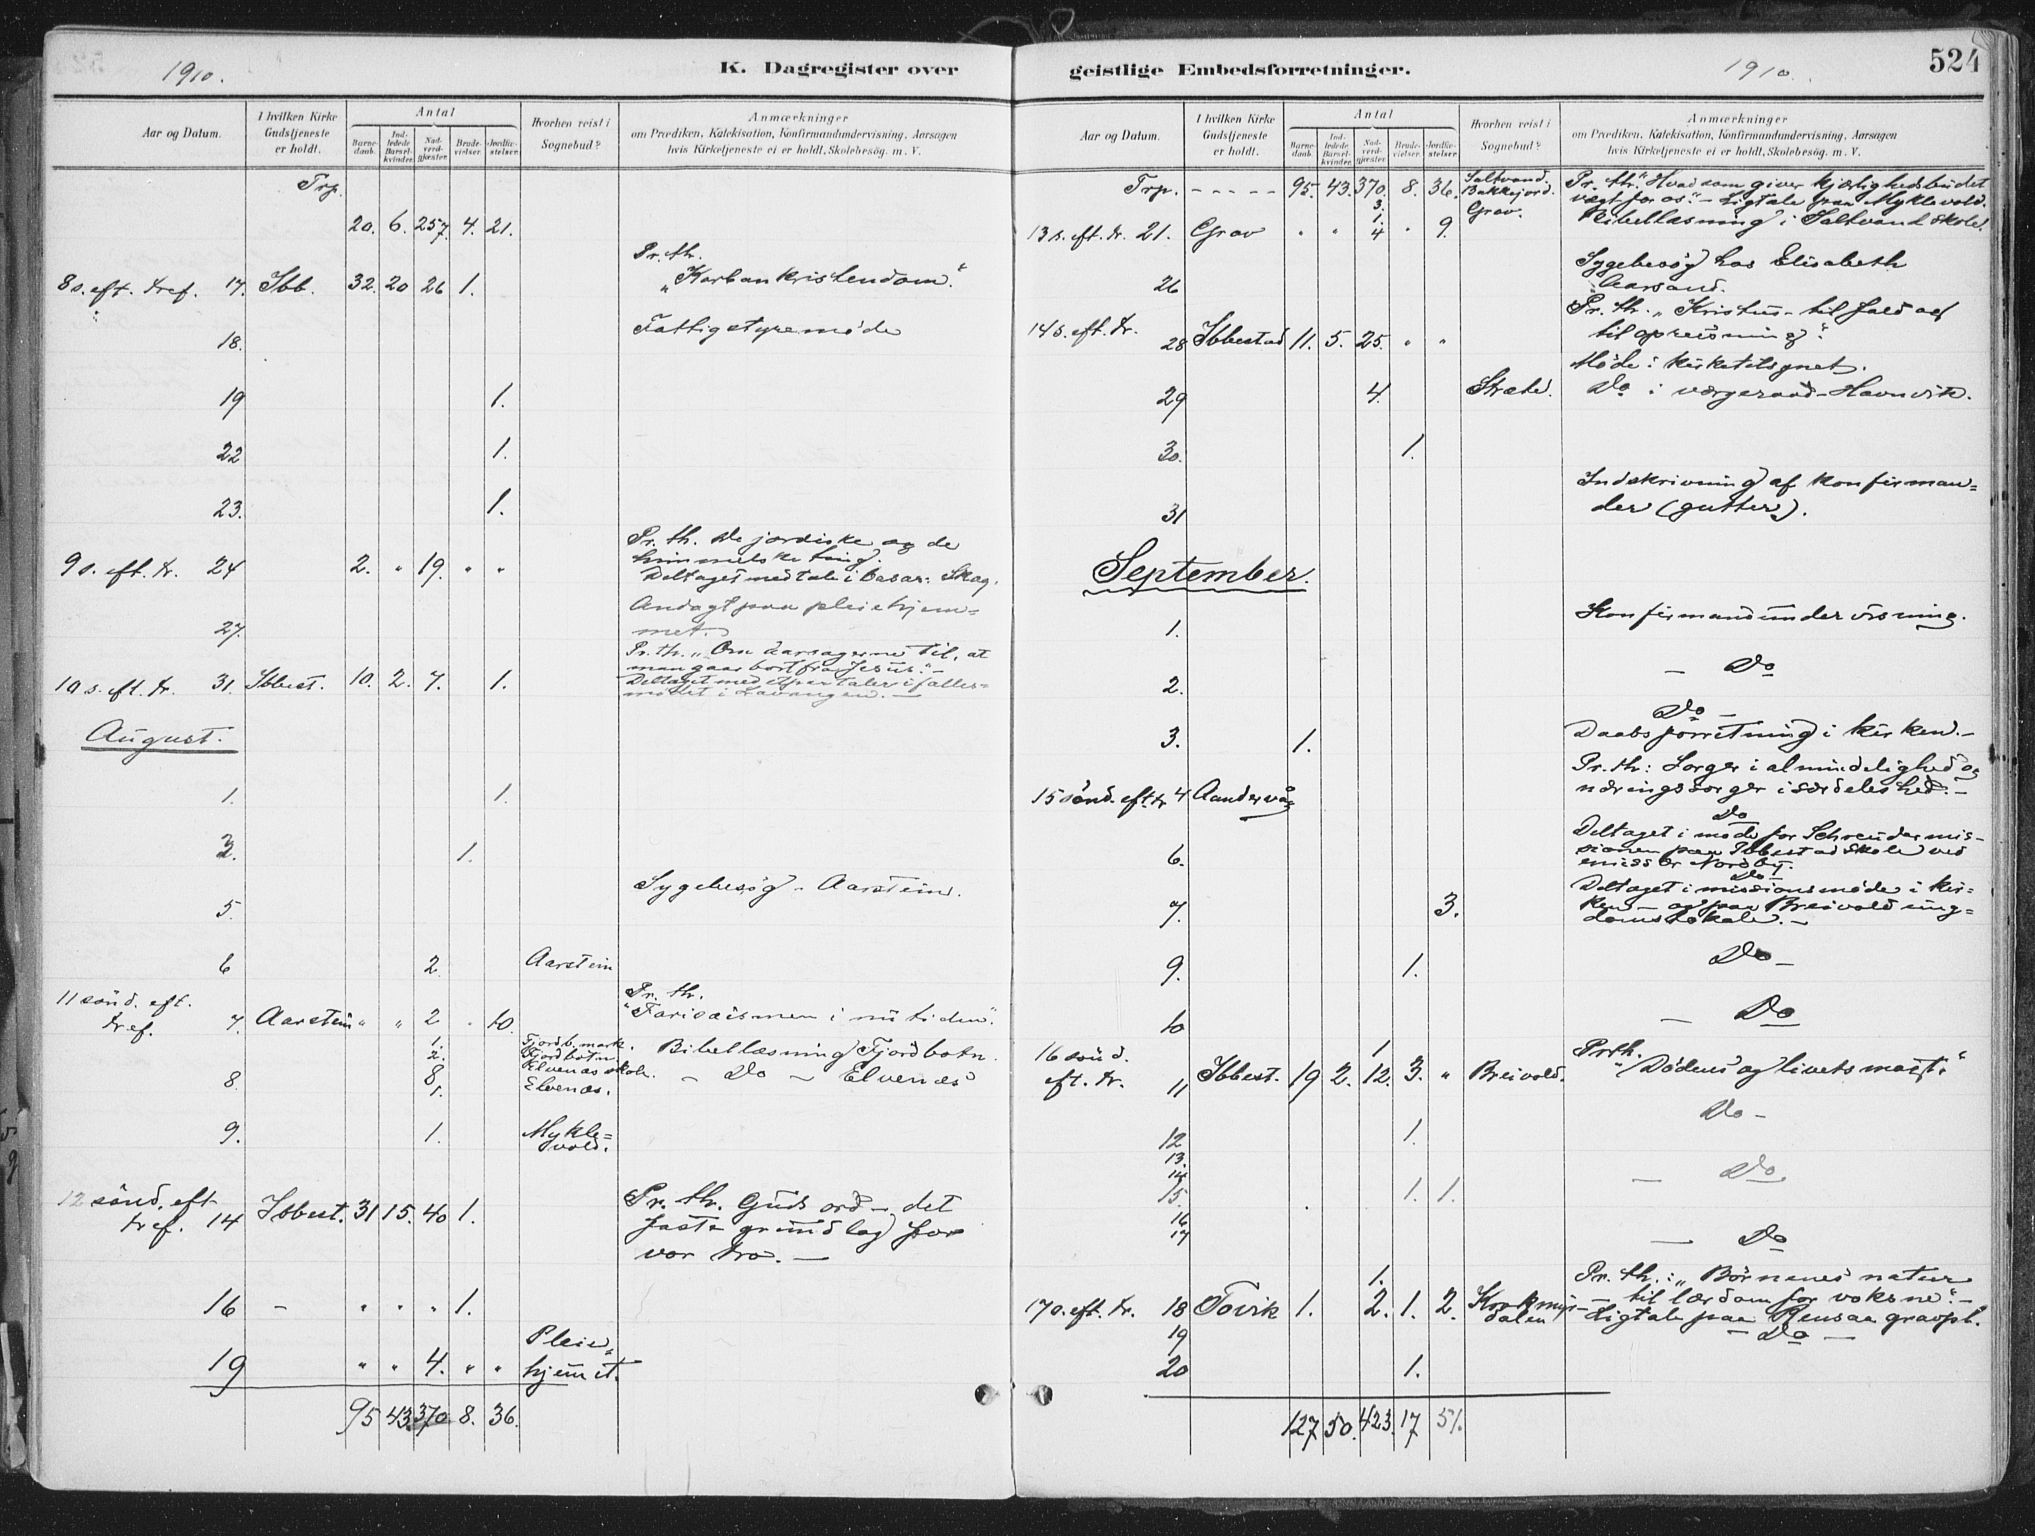 1910.
K. Dagregister over
Aar og Datum.
I hvilken Kirke Gudstjeneste er holdt.
Antal
Barnedaab.
Indledede Barselkvinder.
Nadverdgjester.
Brudevielser.
Jordfæstelser.
Hvorhen reist i Sognebud?
Anmærkninger
om Prædiken, Katekisation, Konfirmandundervisning, Aarsagen
hvis Kirketjeneste ei er holdt, Skolebesøg. m. V.
Trp.
20. 6. 257. 4. 21.
Pr. th.
8 s. eft. tref. 17. Ibb. 32. 20 26 1. „Korbankristendom“.
18. Fattigstyremøde
19 1.
22 1.
23. 1.
Pr. th. De jordiske og de
himmelske ting.
9 s. eft. tr. 24 2. " 19. " " Deltaget med tale i basar: Skog.
Andagt paa pleiehjem=
27. met.
Pr. th. „Om aarsagerne til, at
man gaar bort fra Jesus“. –
10 s. eft. tr. 31. Ibbest. 10. 2. 7. 1. Deltaget med et par taler i fælles=
mødet i Lavangen. –
August.
1. 1.
2. 1.
5. Sygebesøg - Aarstein.
6 2. Aarstein
11 sönd. eft. Pr. th.
tref. 7. Aarstein " " 2 10. “Farisæismen i nutiden“.
1. Fjordb. mark.
2. Fjordbotn Bibellæsning Fjordbotn.
8 Elvenes skole. – Do – Elvenes
8. 1. Elvenes.
9. 1. Mykle=
vold.
12 sönd. eft. Pr. th. Guds ord – det
tref. 14 Ibbest. 31 15. 40 1. faste grundlag for
vor tro. –
16 – " " " 1.
Pleie=
19 " " 4. " " hjemmet.
95 43. 370 8. 36.
geistlige Embedsforretninger.
1910.
524
Aar og Datum.
I hvilken Kirke Gudstjeneste er holdt.
Antal
Barnedaab.
Indledede Barselkvinder.
Nadverdgjester.
Brudevielser.
Jordfæstelser.
Hvorhen reist i Sognebud?
Anmærkninger
om Prædiken, Katekisation, Konfirmandundervisning, Aarsagen
hvis Kirketjeneste ei er holdt, Skolebesøg. m. V.
Trp. – – – – – 95. 43. 370. 8. 36. Saltvand. Pr. th.“ Hvad som giver kjærlighedsbudet
3. Bakkejord. vægt for os“. – Ligtale paa Myklevold.
1. Grav. Bibellæsning i Saltvand skole.
13 s. eft. tr. 21. Grov " " 4 " 9.
Sygebesøg hos Elisabeth
26 Aarsand.
Pr. th. „Kristus – til fald og
14 s. eft. tr. 28 Ibbestad 11. 5. 25. " " til opreisning“.
Møde i kirketilsynet.
29 4. Stræte. Do i værgeraad – Havnvik.
30. 1.
Indskrivning af konfirman=
31 der (gutter).
September.
1. Konfirmandundervisning.
2. – Do
Do –
3. 1. Daabsforretning i kirken. –
Pr. th: Sorger i almindelighed og
15 sönd. eft. tr 4 Aandervåg næringssorger i særdeleshed. –
Do
Deltaget i møde for Schreudermis=
6. sionen paa Ibbestad skole ved
emissær Nordby.
Do –
Deltaget i missionsmøde i kir=
7. 3. ken – og paa Breivold ung=
domslokale. –
9. 1. Do –
10 – Do
16 sönd. 1 Pr. th.
eft. tr. 11 Ibbest. 19 2. 12. 3. " Breivold. “Dødens og livets magt.“
12 1. Do –
13.
14
15. 1. 1. – Do.
16
17 – Do
1. Pr. th.: „Børnenes natur
17 s. eft. tr. 18 Tovik 1. 2. 1. 2. til lærdom for voksne“. –
dalen Ligtale paa Rensaa gravpl.
19 – Do –
20 1.
127 50. 423. 17 51.